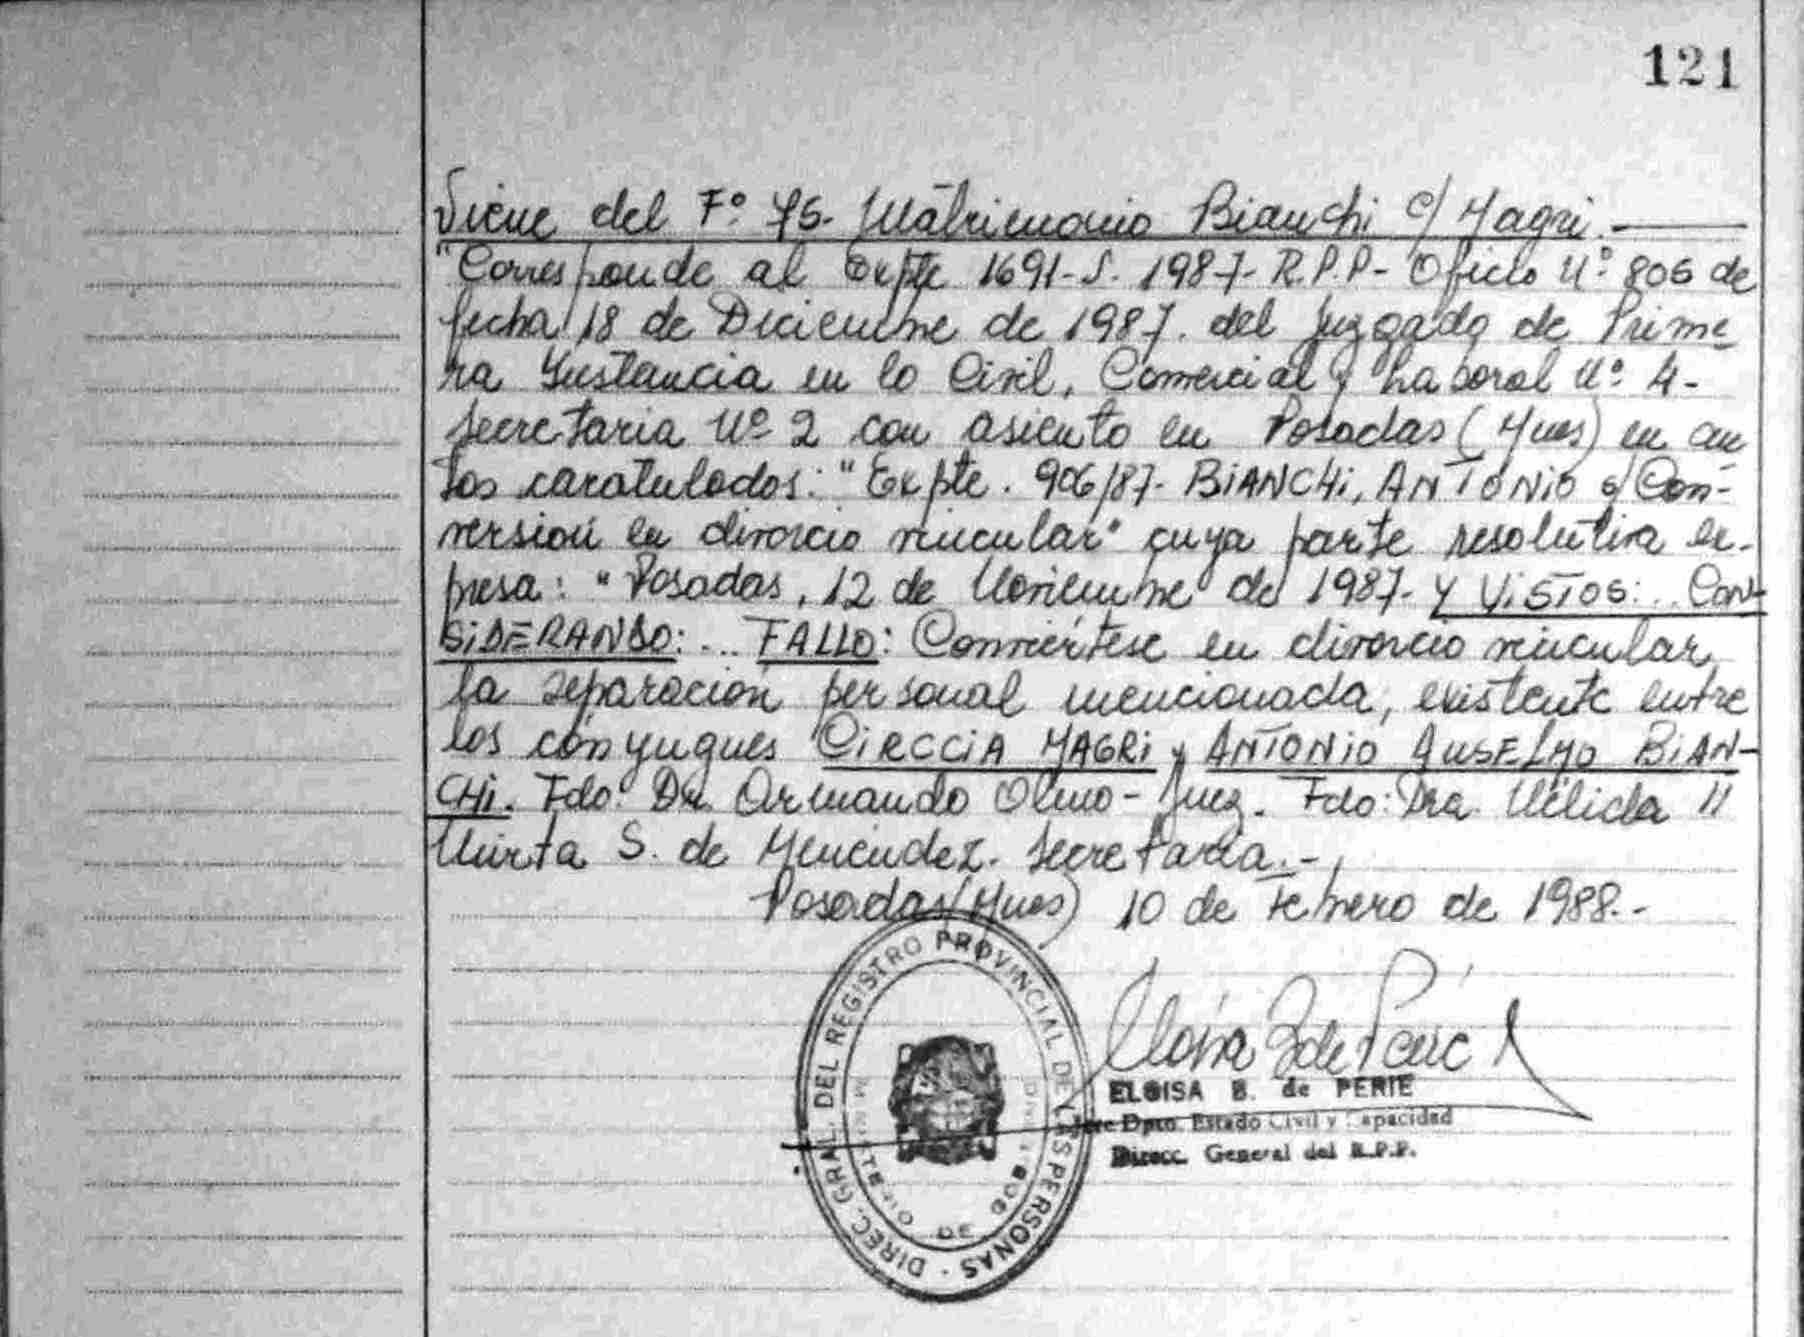 121
Viene del Fº 75. Matrimonio Bianchi c/ Magri.
"Corresponde al Expte 1691-S. 1987- R.P.P- Oficio Nº 806 de
fecha 18 de Diciembre de 1987. del Juzgado de Prime
ra Instancia en lo Civil, Comercial y Laboral Nº 4-
Secretaria Nº 2 con asiento en Posadas (Mnes) en au
tos caratulados: "Expte. 906/87- BIANCHI, ANTONIO s/ Con-
versión en divorcio vincular" cuya parte resolutiva ex-
presa: "Posadas, 12 de Noviembre de 1987- Y VISTOS:.. CON-
SIDERANDO:... FALLO: Conviértese en divorcio vincular
la separación personal mencionada, existente entre
los cónyugues CIRCCIA MAGRI y ANTONIO ANSELMO BIAN-
CHI. Fdo: Dr. Armando Olmo- Juez. Fdo: Dra. Nélida
Mirta S. de Menéndez. Secretaria.-
Posadas (Mnes) 10 de Febrero de 1988.-
DIREC. GRAL. DEL REGISTRO PROVINCIAL DE LAS PERSONAS
ELOISA B. de PERIE
Jefe Dpto. Estado Civil y Capacidad
Direcc. General del R.P.P.